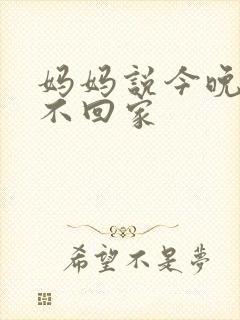 妈妈説今晚
不回家
希望不是夢